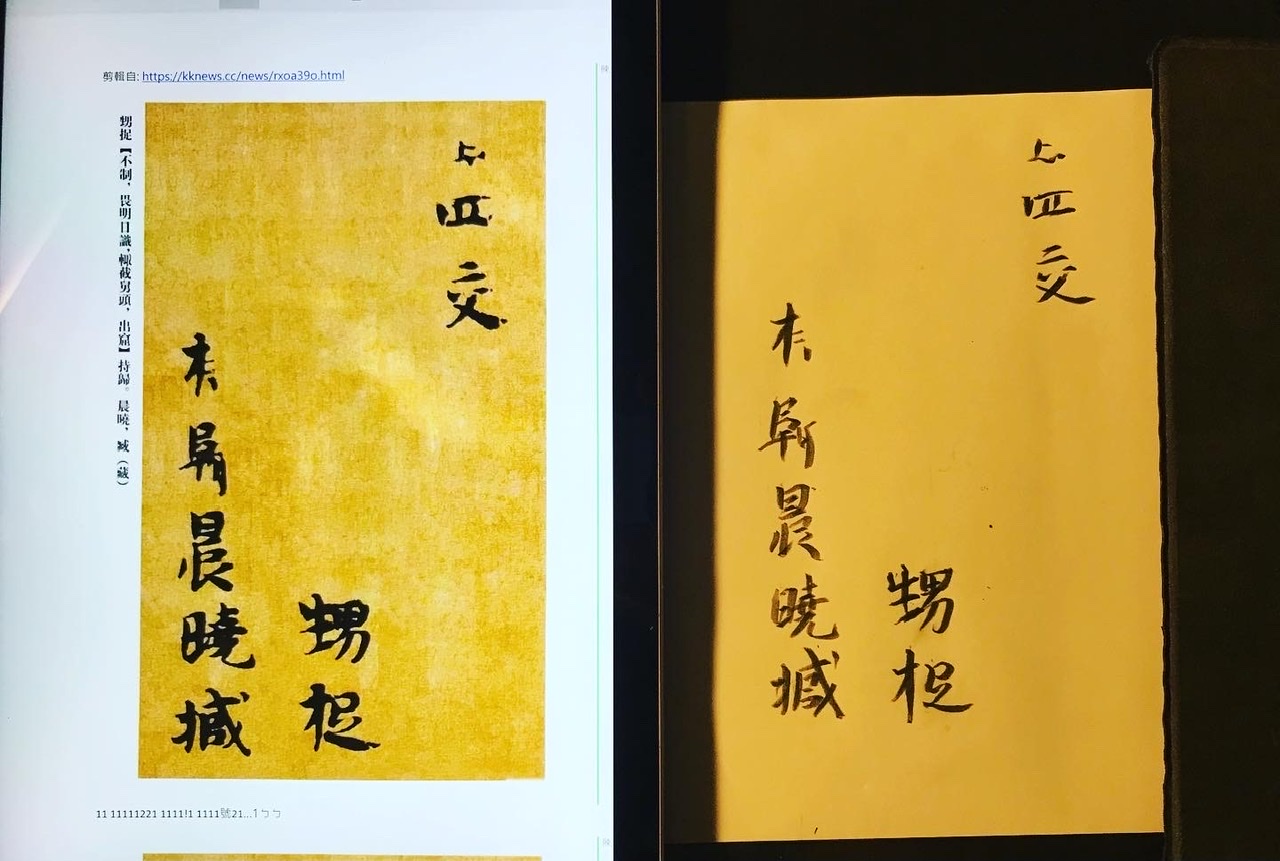 剪輯自: https://kknews.cc/news/rxoa39o.html
甥捉【不制，畏明日識，輒截舅頭，出窟】持歸。晨曉，臧（藏）
四交
甥捉
晨曉
11 11111221 1111!1 1111號21...1ㄅㄅ
四交
甥捉
晨曉